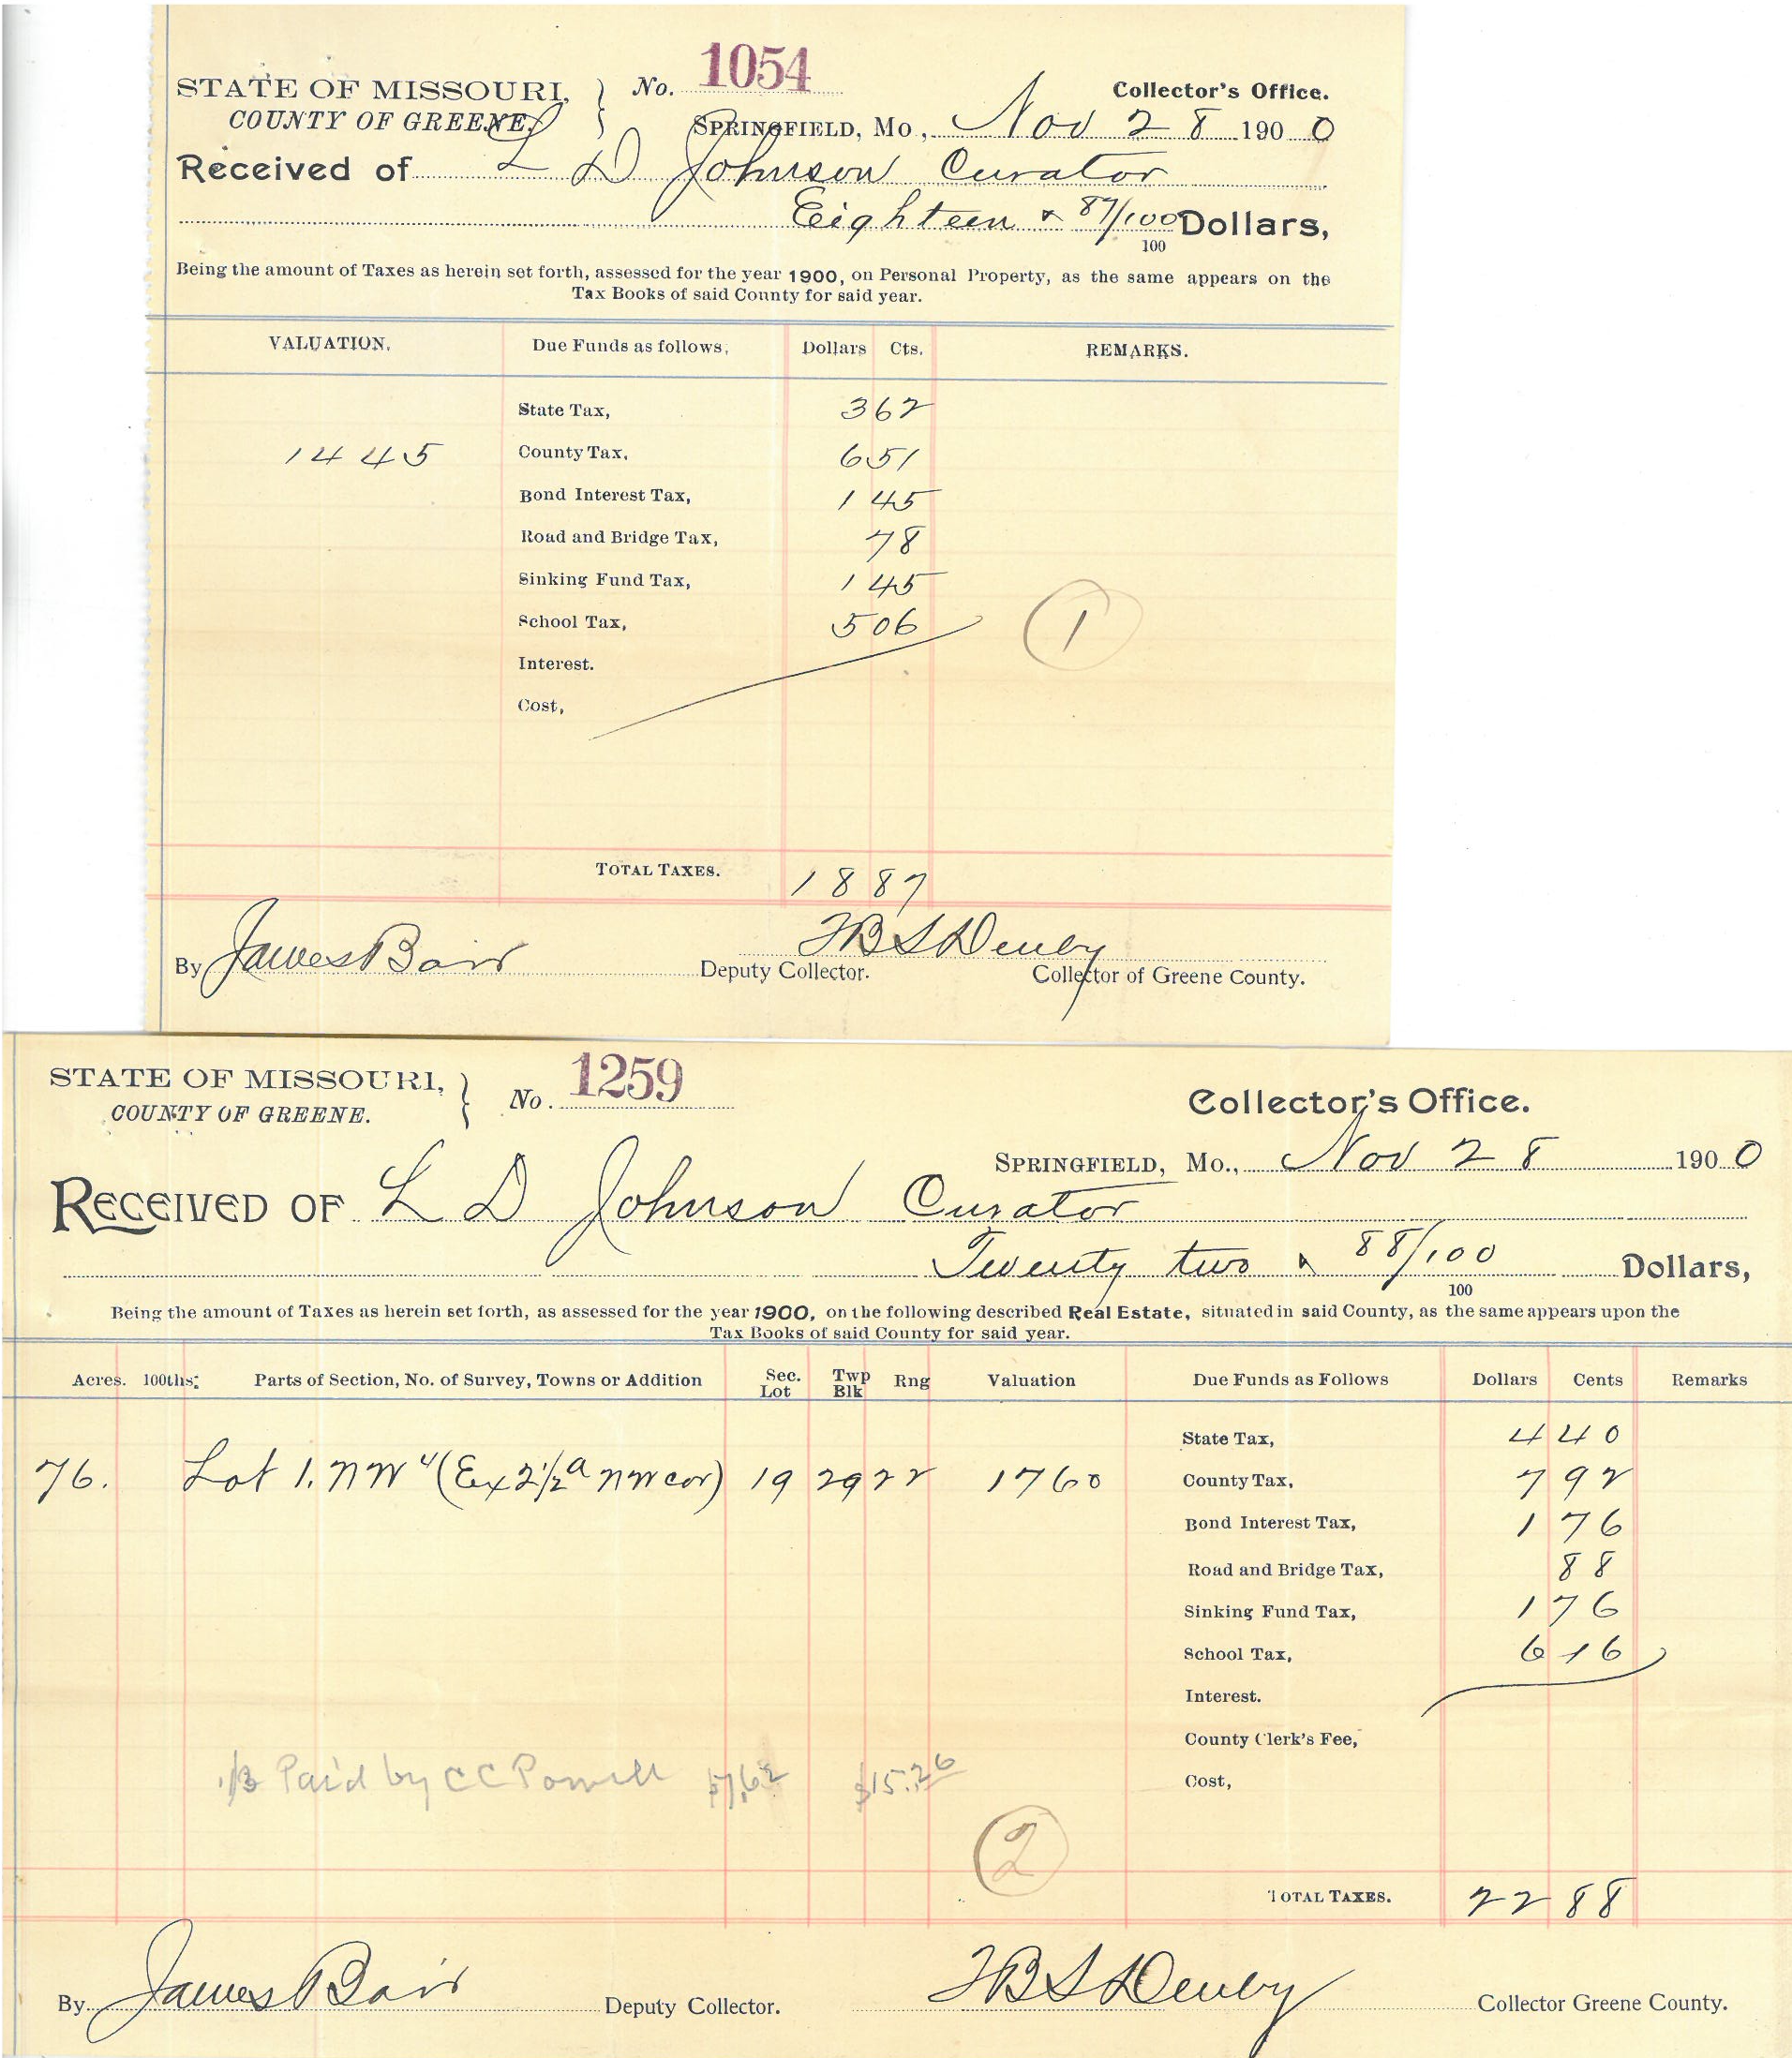 STATE OF MISSOURI, } No. 1054 Collector's Office.
COUNTY OF GREENE. SPRINGFIELD, Mo., Nov 28 1900
Received of L D Johnson Curator
Eighteen & 87/100 Dollars,
100
Being the amount of Taxes as herein set forth, assessed for the year 1900, on Personal Property, as the same appears on the
Tax Books of said County for said year.
VALUATION. Due Funds as follows, Dollars Cts. REMARKS.
State Tax, 3 62
1445 County Tax, 6 51
Bond Interest Tax, 1 45
Road and Bridge Tax, 78
Sinking Fund Tax, 1 45
School Tax, 5 06
1
Interest.
Cost,
TOTAL TAXES. 18 87
By James Bair Deputy Collector. Collector of Greene County.
STATE OF MISSOURI, } No. 1259 Collector's Office.
COUNTY OF GREENE.
SPRINGFIELD, Mo., Nov 28 1900
RECEIVED OF L D Johnson Curator
Twenty two & 88/100 Dollars,
100
Being the amount of Taxes as herein set forth, as assessed for the year 1900, on the following described Real Estate, situated in said County, as the same appears upon the
Tax Books of said County for said year.
Acres. 100ths. Parts of Section, No. of Survey, Towns or Addition Sec. Lot Twp Blk Rng Valuation Due Funds as Follows Dollars Cents Remarks
State Tax, 4 40
76. Lot 1. NW 4 (Ex 2 1/2 a NW cor) 19 29 22 1760 County Tax, 7 92
Bond Interest Tax, 1 76
Road and Bridge Tax, 88
Sinking Fund Tax, 1 76
School Tax, 6 16
Interest.
County Clerk's Fee,
1/3 Paid by C C Powell $7.62 $15.26 Cost,
2
TOTAL TAXES. 22 88
By James Bair Deputy Collector. Collector Greene County.